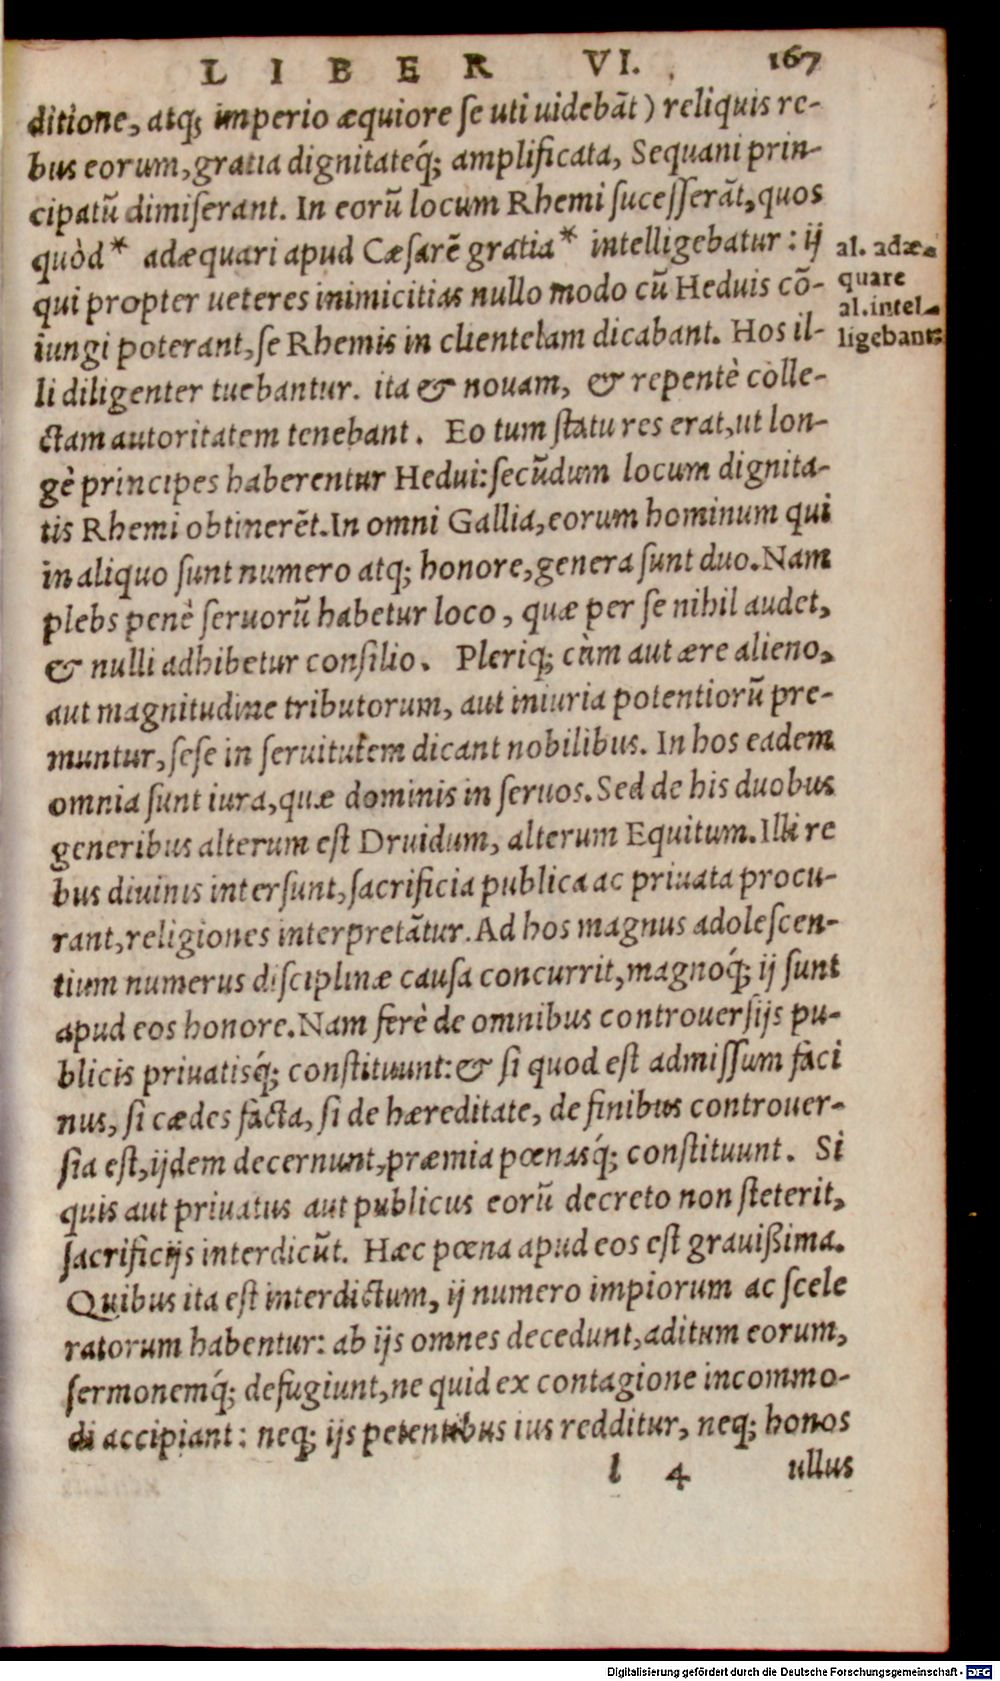 LIBER VI. 167
ditione, atq; imperio æquiore ſe uti uidebãt) reliquis re-
bus eorum, gratia dignitateq́; amplificata, Sequani prin-
cipatũ dimiſerant. In eorũ locum Rhemi ſuceſſerãt, quos
quòd* adæquari apud Cæſarẽ gratia* intelligebatur: ij
qui propter ueteres inimicitias nullo modo cũ Heduis cõ-
iungi poterant, ſe Rhemis in clientelam dicabant. Hos il-
li diligenter tuebantur. ita & nouam, & repentè colle-
ctam autoritatem tenebant. Eo tum ſtatu res erat, ut lon-
gè principes haberentur Hedui: ſecũdum locum dignita-
tis Rhemi obtinerẽt. In omni Gallia, eorum hominum qui
in aliquo ſunt numero atq; honore, genera ſunt duo. Nam
plebs penè ſeruorũ habetur loco, quæ per ſe nihil audet,
& nulli adhibetur conſilio. Pleriq; cùm aut ære alieno,
aut magnitudine tributorum, aut iniuria potentiorũ pre-
muntur, ſeſe in ſeruitutem dicant nobilibus. In hos eadem
omnia ſunt iura, quæ dominis in ſeruos. Sed de his duobus
generibus alterum eſt Druidum, alterum Equitum. Illi re
bus diuinis interſunt, ſacrificia publica ac priuata procu-
rant, religiones interpretãtur. Ad hos magnus adoleſcen-
tium numerus diſciplinæ cauſa concurrit, magnoq́; ij ſunt
apud eos honore. Nam ferè de omnibus controuerſijs pu-
blicis priuatisq́; conſtituunt: & ſi quod eſt admiſſum faci
nus, ſi cædes facta, ſi de hæreditate, de finibus controuer-
ſia eſt, ijdem decernunt, præmia pœnasq́; conſtituunt. Si
quis aut priuatus aut publicus eorũ decreto non ſteterit,
ſacrificijs interdicũt. Hæc pœna apud eos eſt grauißima.
Quibus ita eſt interdictum, ij numero impiorum ac ſcele
ratorum habentur: ab ijs omnes decedunt, aditum eorum,
ſermonemq́; defugiunt, ne quid ex contagione incommo-
di accipiant: neq; ijs petentibus ius redditur, neq; honos
l 4 ullus
al. adæ-
quare
al. intel-
ligebant
Digitalisierung gefördert durch die Deutsche Forschungsgemeinschaft - DFG